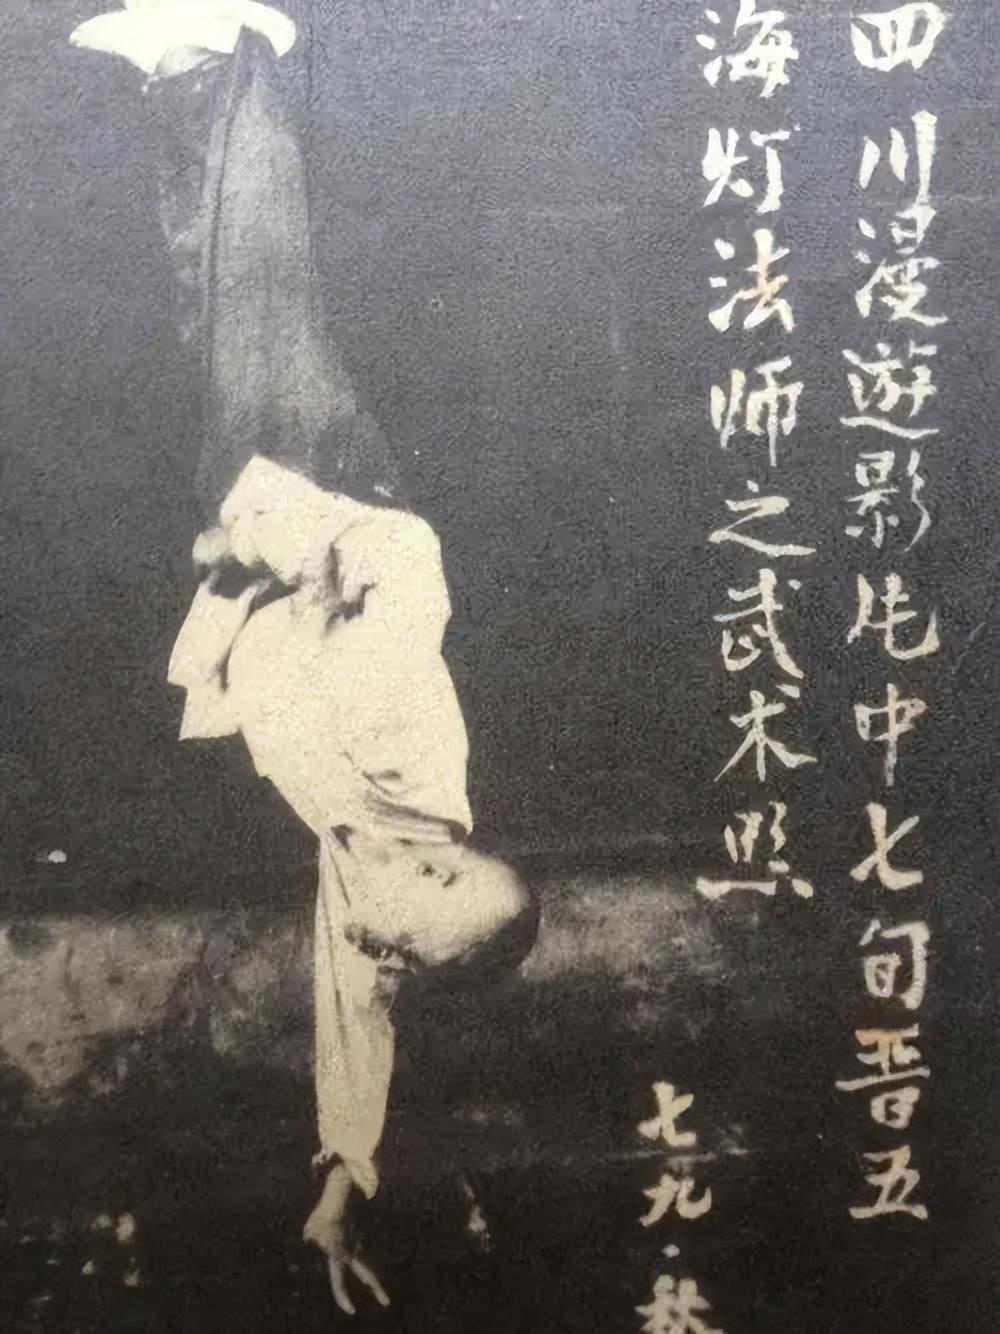 四川漫遊影片中七旬晋五
海灯法师之武术照
七九.秋